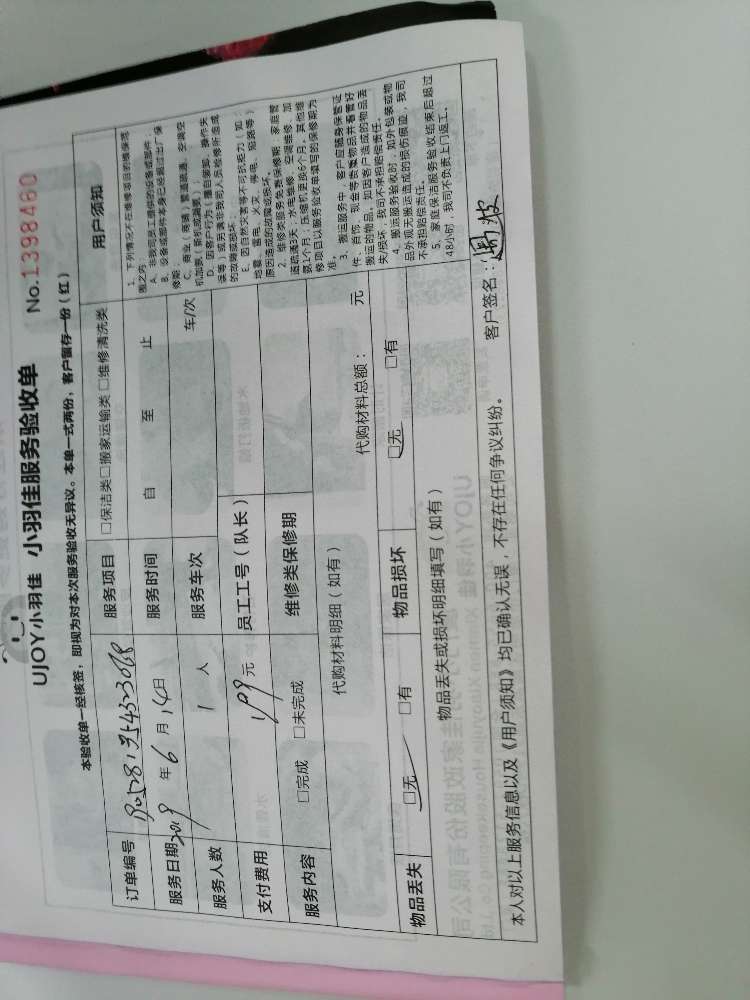 UJOY小羽佳 小羽佳服务验收单 No.1398460
本验收单一经核签，即视为对本次服务验收无异议。本单一式两份，客户留存一份（红）
订单编号 服务项目 □保洁类□搬家运输类□维修清洗类 用户须知
服务日期 2019 年 6 月 14 日 服务时间 自 至 止
服务人数 1 人 服务车次 车/次
支付费用 199 元 员工工号（队长）
服务内容 □完成 □未完成 维修类保修期
代购材料明细（如有） 代购材料总额： 元
物品丢失 □无 □有 物品损坏 □无 □有
物品丢失或损坏明细填写（如有）
1、下列情况不在维修项目的维保范
围之内：
A、非我司员工提供的设备或部件；
B、设备或部件本身已经超过出厂保
修期；
C、商业（商铺）管道疏通、空调空
D、因客户行为（擅自装卸、操作失
误等）或另请非我司人员检修所造成
的故障或损坏；
E、因自然灾害等不可抗拒力（如：
地震、雷电、火灾、停电、短路等）
原因造成的故障或损坏。
2、维修类服务免费保修期：家庭管
道疏通3天，水电维修、空调维修、加
氨1个月，压缩机更换6个月，其他维
修项目以服务验收单填写的保修期为
准。
3、搬运服务中，客户应随身保管证
件、首饰、现金等贵重物品并看管好
搬运的物品，如因客户造成的物品丢
失/损坏，我司不承担赔偿责任。
4、搬运服务验收时，如外包装或物
品外观无搬运造成的损伤痕迹，我司
不承担赔偿责任。
5、家庭保洁服务验收结束后超过
48小时，我司不负责上门返工。
本人对以上服务信息以及《用户须知》均已确认无误，不存在任何争议纠纷。 客户签名：周波